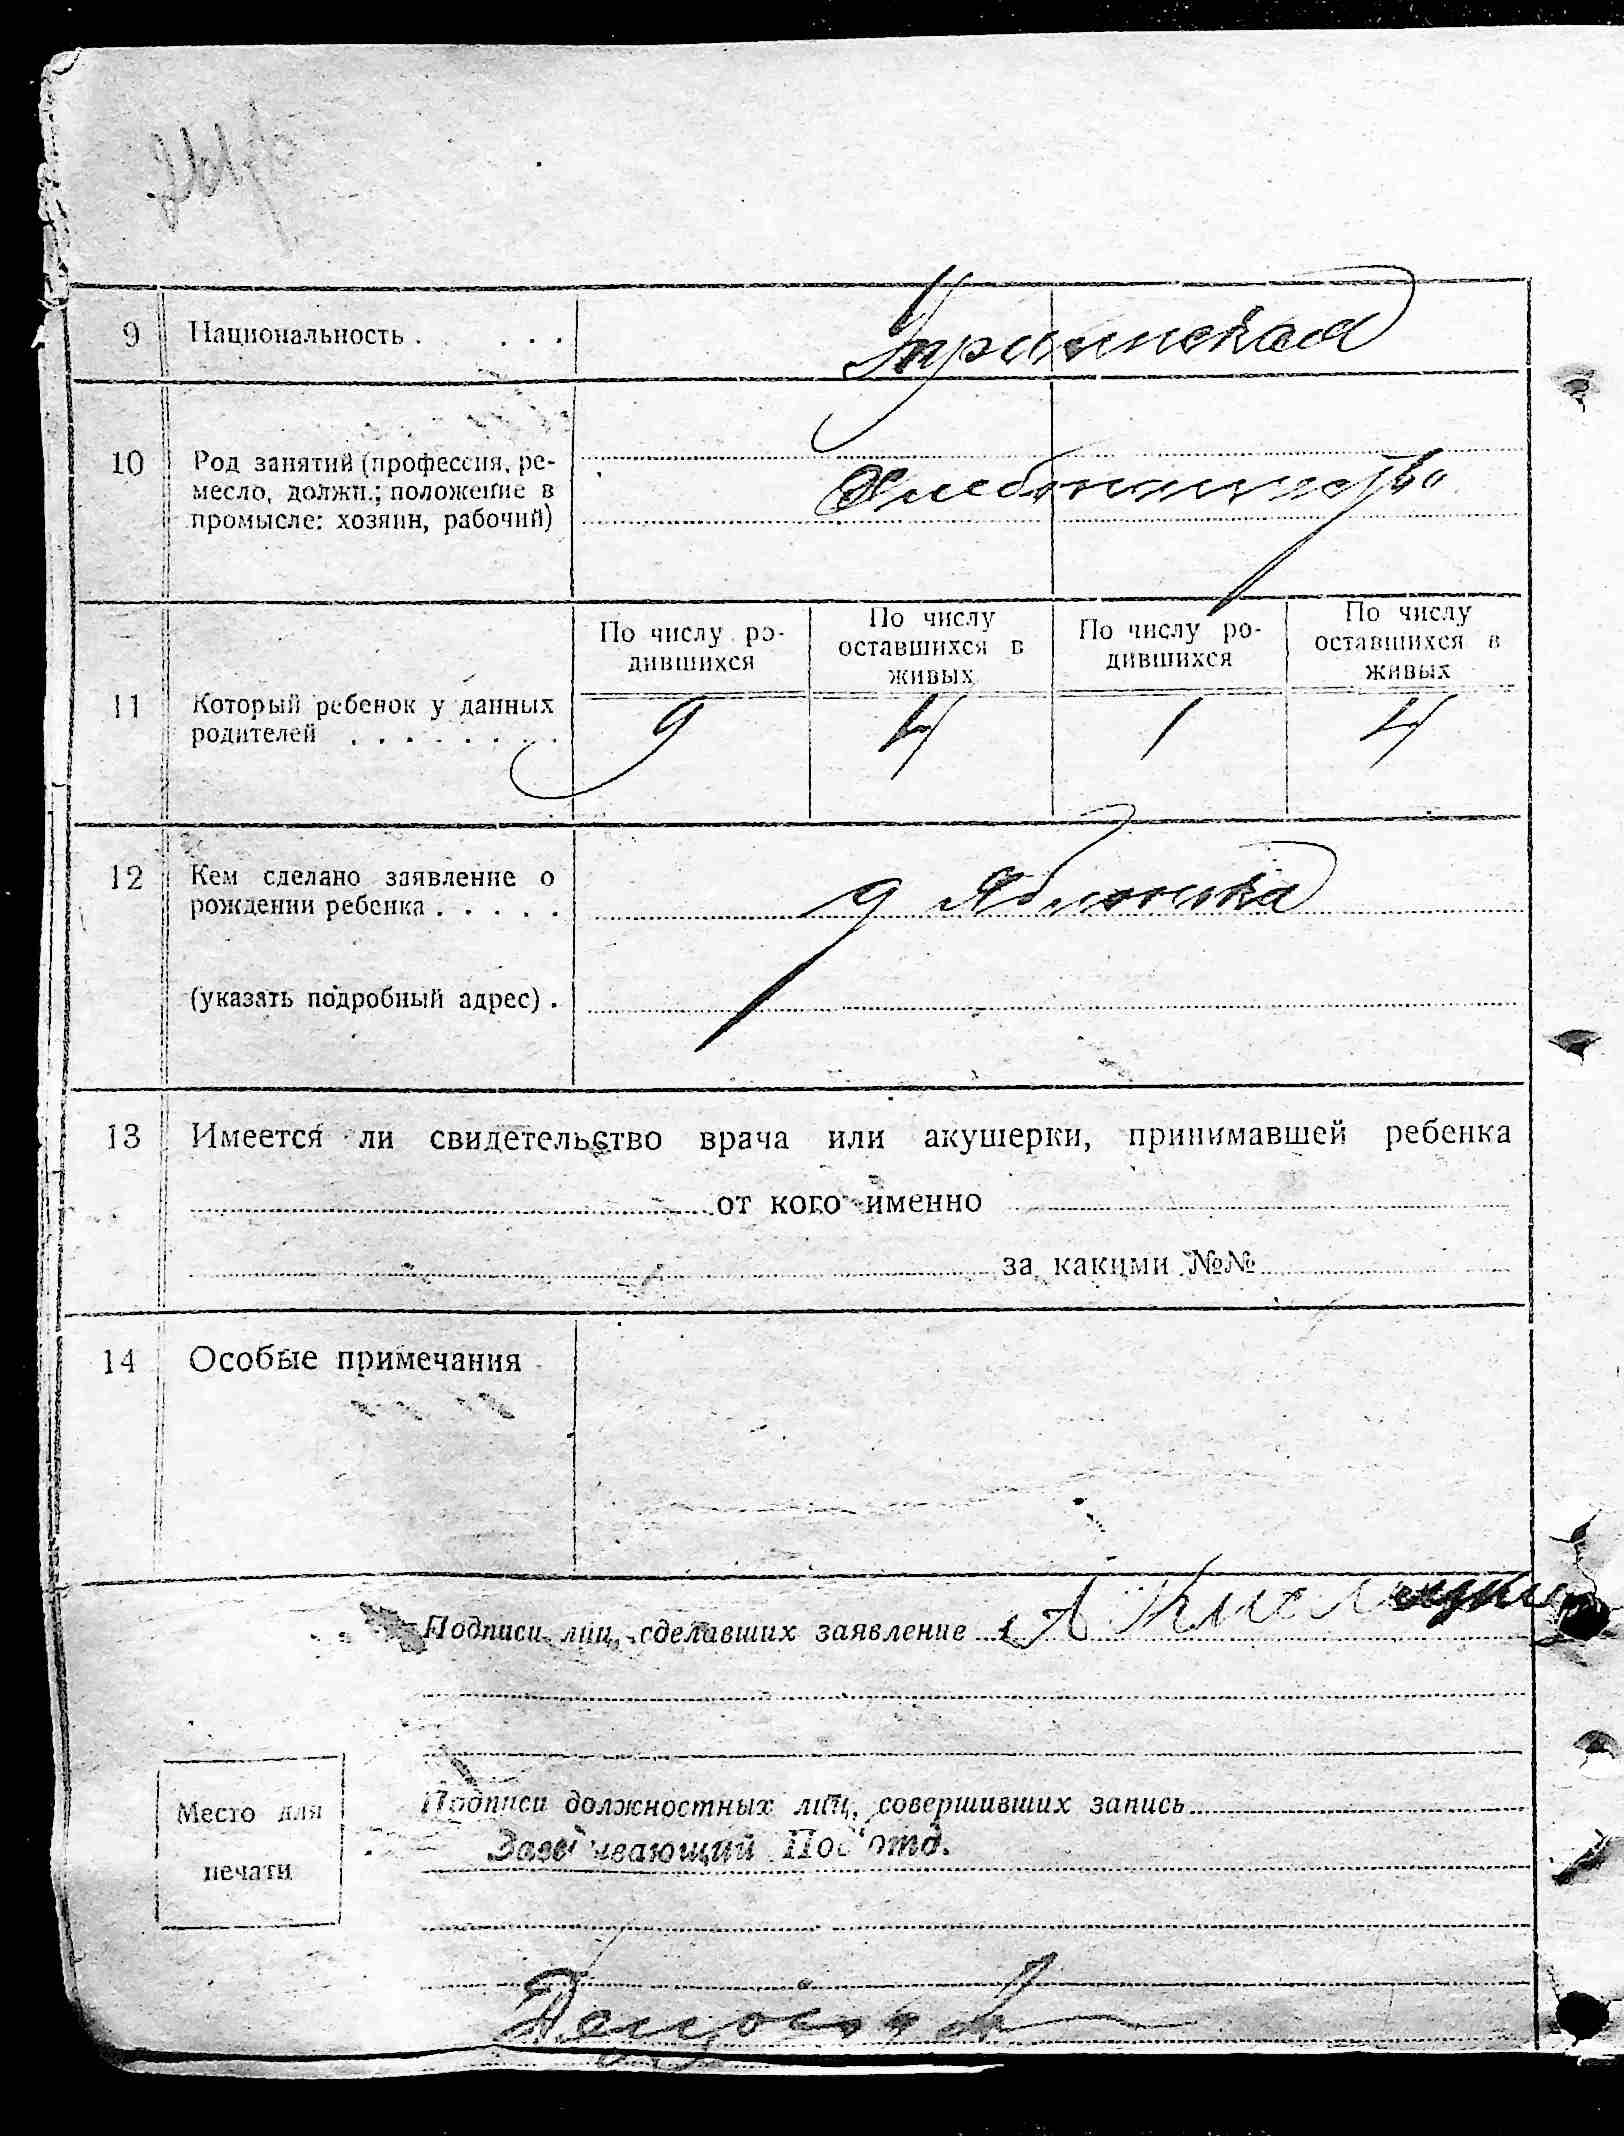 9 Национальность . . . . Украинская
10 Род занятий (профессия, ре-
месло, должн.; положение в
промысле: хозяин, рабочий)
Хлебопашество
По числу ро-
дившихся
По числу
оставшихся в
живых
По числу ро-
дившихся
По числу
оставшихся в
живых
11 Который ребенок у данных
родителей . . . . . . . .
9 4 1 4
12 Кем сделано заявление о
рождении ребенка . . . . .
Яблоновка
(указать подробный адрес) .
13 Имеется ли свидетельство врача или акушерки, принимавшей ребенка
от кого именно
за какими №№
14 Особые примечания
Подписи лиц, сделавших заявление А
Подписи должностных лиц, совершивших запись
Заведывающий Под'отд.
Место для
печати